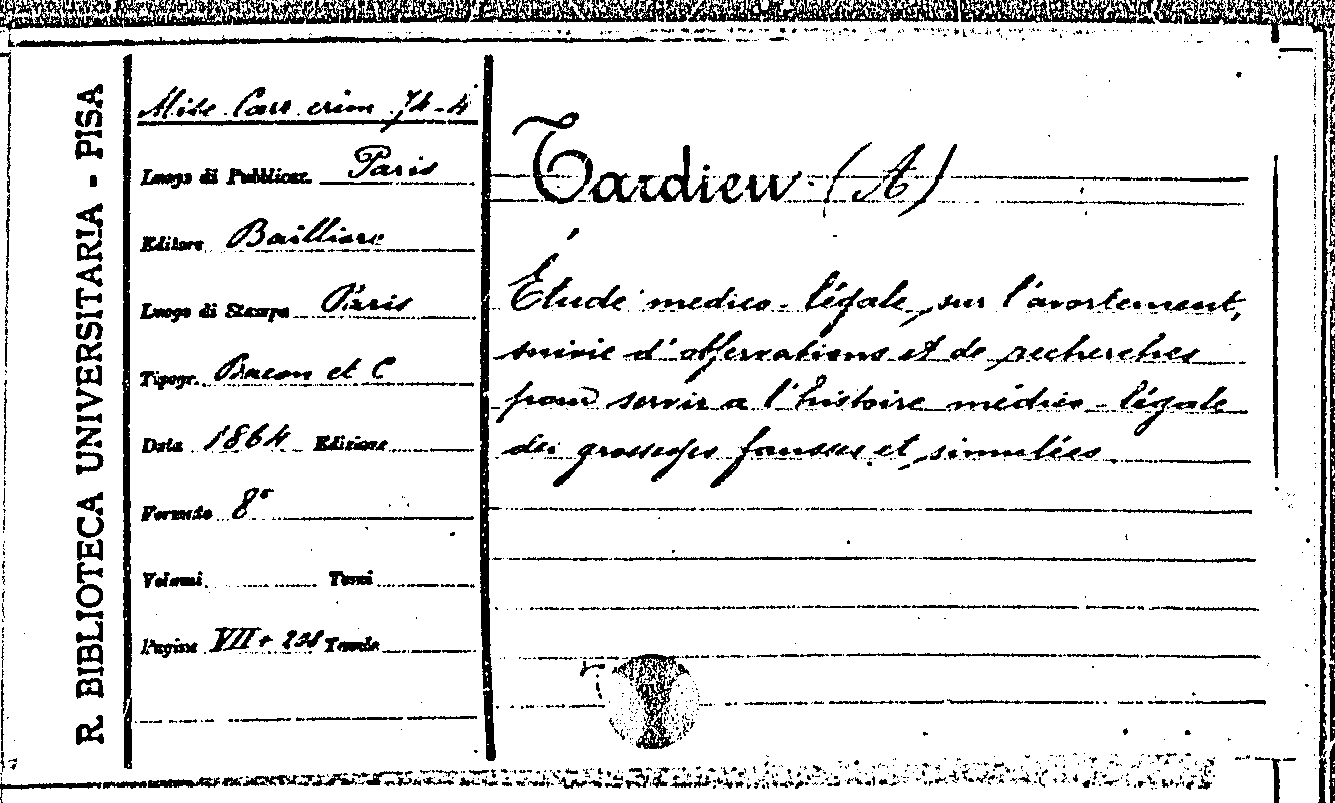 R. BIBLIOTECA UNIVERSITARIA - PISA
Misc. Carr. crim. 74-4
Luogo di Pubblicaz. Paris
Editore Bailliere
Luogo di Stampa Paris
Tipogr. Bacon et C
Data 1864 Edizione
Formato 8°
Volumi Tomi
Pagine VII + Tavole
Tardieu (A)
Étude médico-légale sur l'avortement,
suivie d'observations et de recherches
pour servir a l'histoire médico-légale
des grossesses fausses et simulées